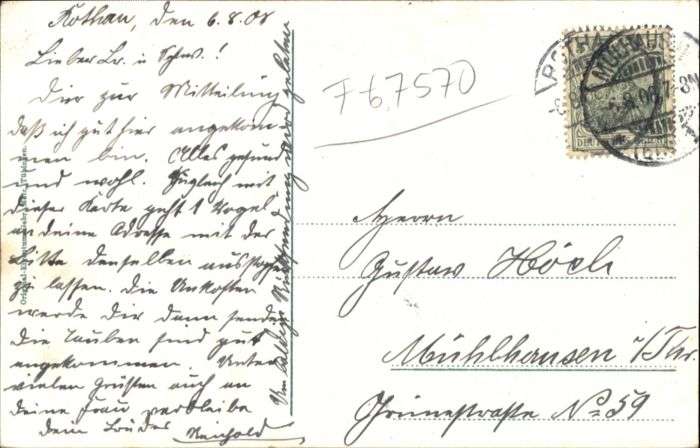 Rothau, den 6.8.08
Lieber Br. u Schw.!
Dir zur Mitteilung
daß ich gut hier angekom-
men bin. Alles gesund
und wohl. Zugleich mit
dieser Karte geht 1 Vogel
an deine Adresse mit der
Bitte denselben ausstopfen
zu lassen. Die Unkosten
werde Dir dann senden
Die Tauben sind gut
angekommen. Unter
vielen Grüßen auch an
deine Frau verbleibe
dein Bruder Reinhold
Um baldige Rücksendung wird gebeten
F67570
Herrn
Gustav Höch
Mühlhausen i/Thr.
Grünestraße No 59
ROTHAU
MÜHLHAUSEN